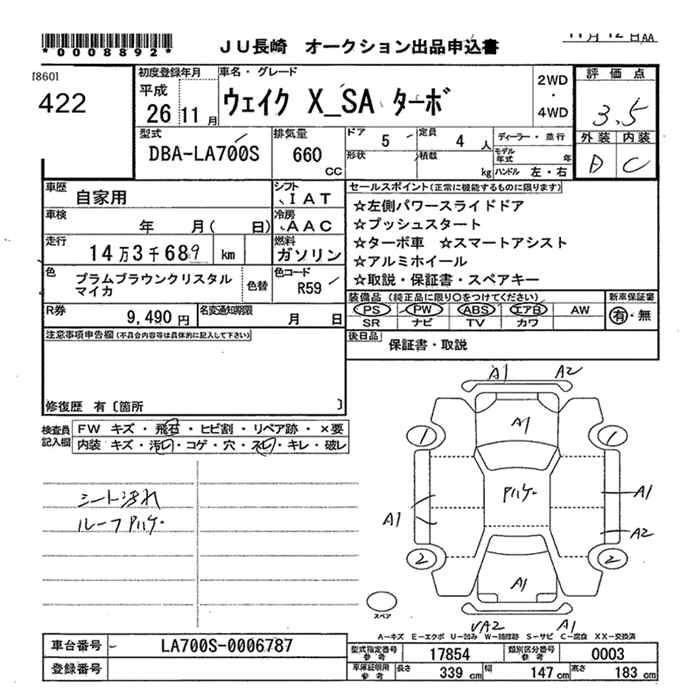 *0008892* JU長崎 オークション出品申込書 11月12日AA
[860]
422
初度登録年月 平成 26 11 月
車名・グレード ウェイク X_SA ターボ
2WD ・ 4WD
評価点 3.5
外装 内装
D C
型式 DBA-LA700S
排気量 660 CC
ドア 5
定員 4 人
形状 積載 kg
ディーラー・並行
モデル年式 年
ハンドル 左・右
車歴 自家用
シフト IAT
車検 年 月( 日)
冷房 AAC
走行 14万3千689 km
燃料 ガソリン
色 プラムブラウンクリスタルマイカ
色替
色コード R59
R券 9,490 円
名変通知期限 月 日
セールスポイント(正常に機能するものに限ります)
☆左側パワースライドドア
☆プッシュスタート
☆ターボ車 ☆スマートアシスト
☆アルミホイール
☆取説・保証書・スペアキー
装備品(純正品に限り○をつけてください) 新車保証書
PS PW ABS エアB AW 有・無
SR ナビ TV カワ
後日品 保証書・取説
注意事項申告欄(不具合内容等は具体的に記入して下さい)
修復歴 有〔箇所 〕
検査員記入欄
FW キズ・飛石・ヒビ割・リペア跡・×要
内装 キズ・汚レ・コゲ・穴・スレ・キレ・破レ
シート汚れ
ルーフアハゲ
A1 A2
A1
1 1
アハゲ
A1 A1
A2
2 2
A1
UA2 A1
スペア
A-キズ E-エクボ U-凹み W-補修跡 S-サビ C-腐食 XX-交換済
車台番号 LA700S-0006787
登録番号
型式指定番号 参考 17854
類別区分番号 参考 0003
車庫証明用 参考 長さ 339 cm 幅 147 cm 高さ 183 cm